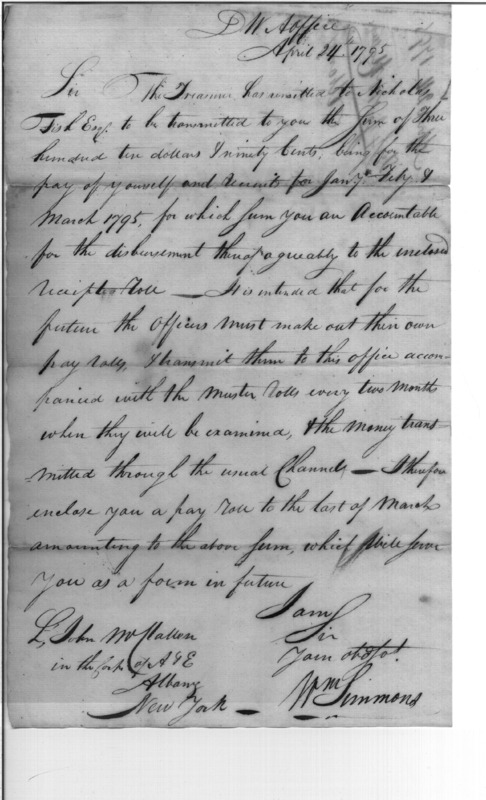 D W A office
April 24 1795
Sir The Treasurer has remitted to Nicholas
Fish Esq. to be transmitted to you the Sum of Three
hundred ten dollars & ninety Cents, being for the
pay of yourself and recruits for Jany. Feby &
March 1795, for which sum you are Accountable
for the disbursement thereof agreeably to the inclosed
receipt Roll — It is intended that for the
future the Officers must make out their own
pay rolls, & transmit them to this office accom-
panied with the muster rolls every two Month
when they will be examined, & the money trans-
-mitted through the usual Channels — I therefore
enclose you a pay Roll to the last of March
amounting to the above sum, which will serve
you as a form in future
I am
Sir
Your obd st.
Wm Simmons
Lt John McClallen
in the Corps of A & E
Albany
New York